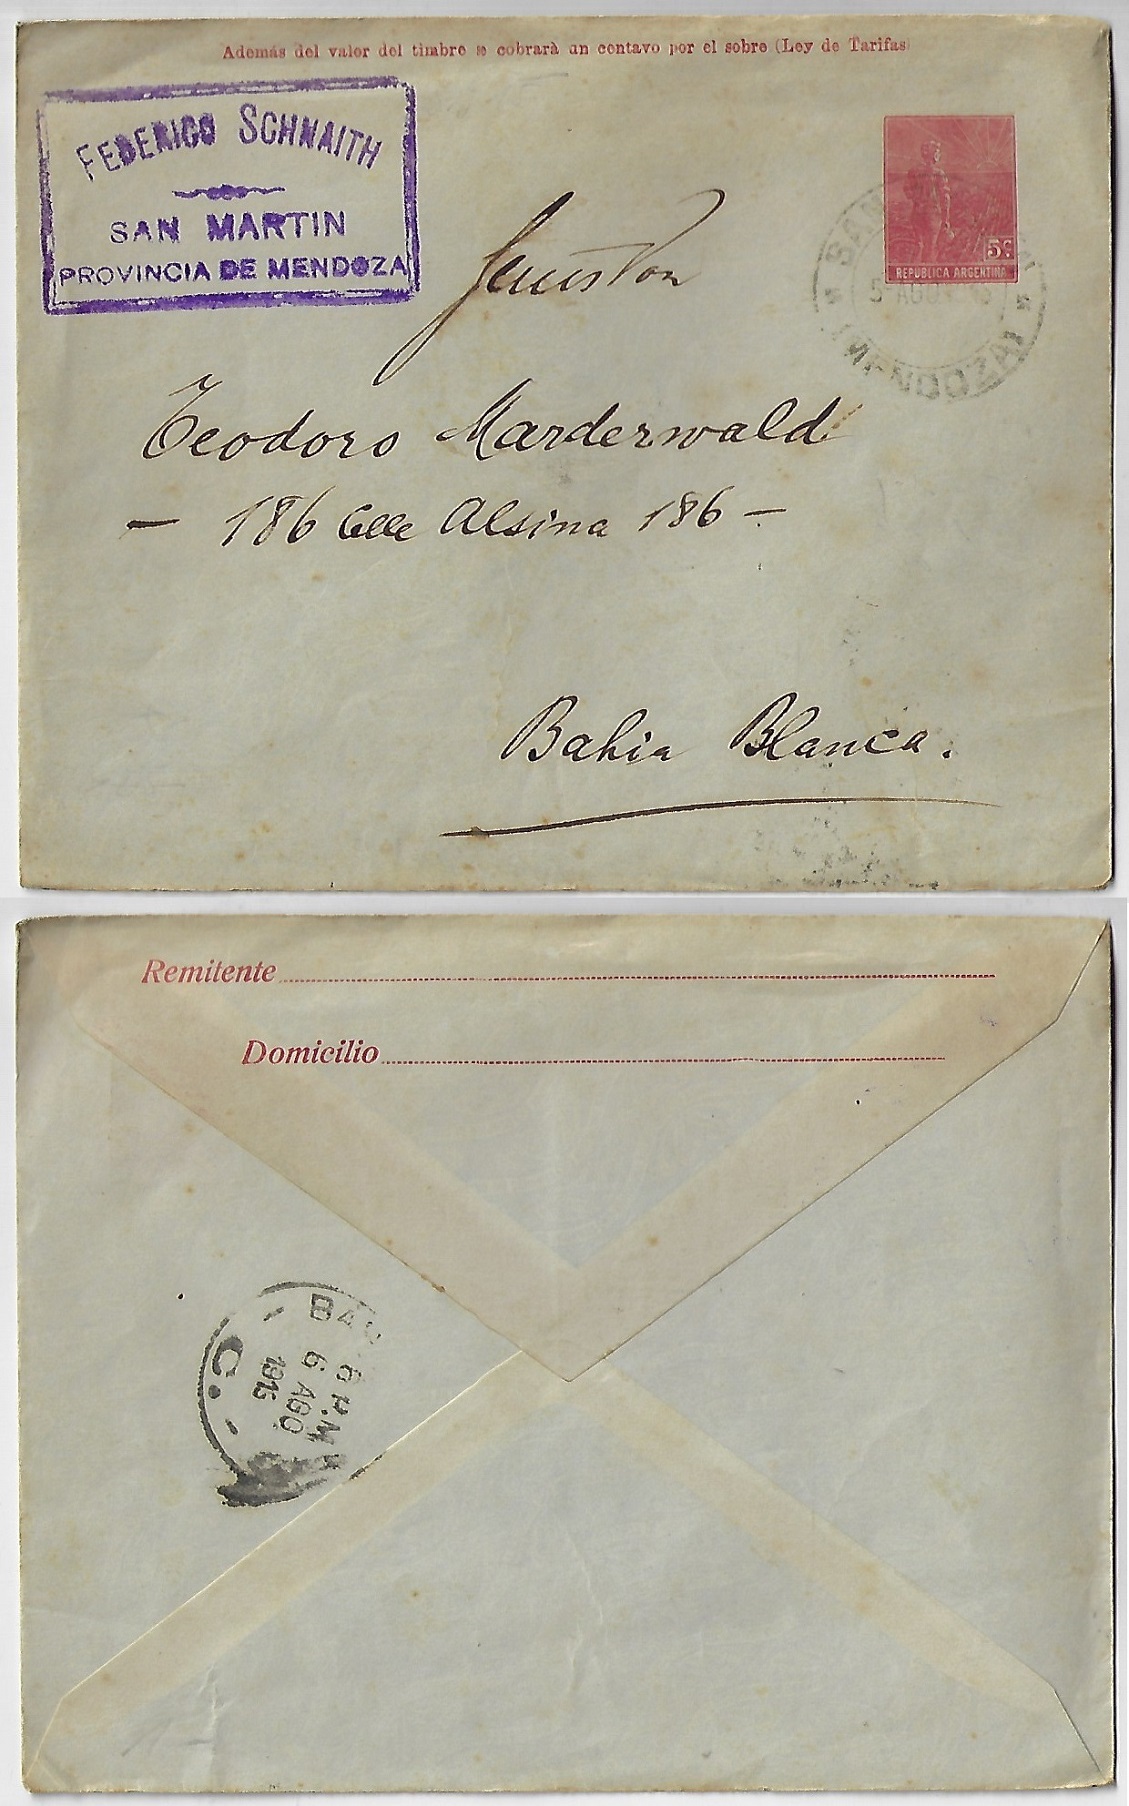 Además del valor del timbre se cobrarà un centavo por el sobre (Ley de Tarifas)
FEDERICO SCHNAITH
SAN MARTIN
PROVINCIA DE MENDOZA
5c
REPUBLICA ARGENTINA
SAN
5 AGO
(MENDOZA)
Teodoro Marderwald
— 186 Calle Alsina 186 —
Bahia Blanca.
Remitente
Domicilio
6 P.M
6 AGO
1915
C.